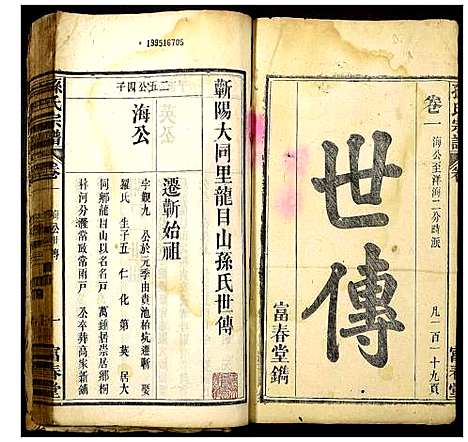 孫氏宗譜
卷一
海公至洋海二分時派
世傳
凡一百一十九頁
富春堂鐫
199516705
蘄陽大同里龍目山孫氏世傳
二五公四子
海公
遷蘄始祖
字觀九 公於元季由貴池柏坑遷蘄 娶
羅氏 生子五 仁 化 第 英 居大
同鄉龍目山以名名戶 萬鍾居崇居鄉桐
梓河分灌常政常兩戶 公卒葬高家新鋪
孫氏宗譜
卷一
海公世傳
一
富春堂